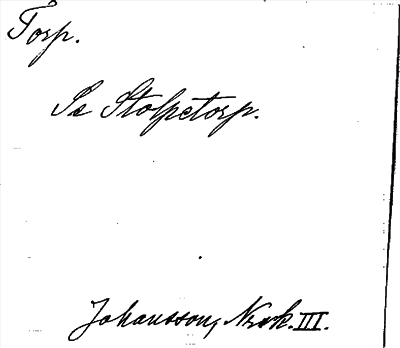 Torp.
Se Stolpetorp.
Johansson, Nrsk. III.